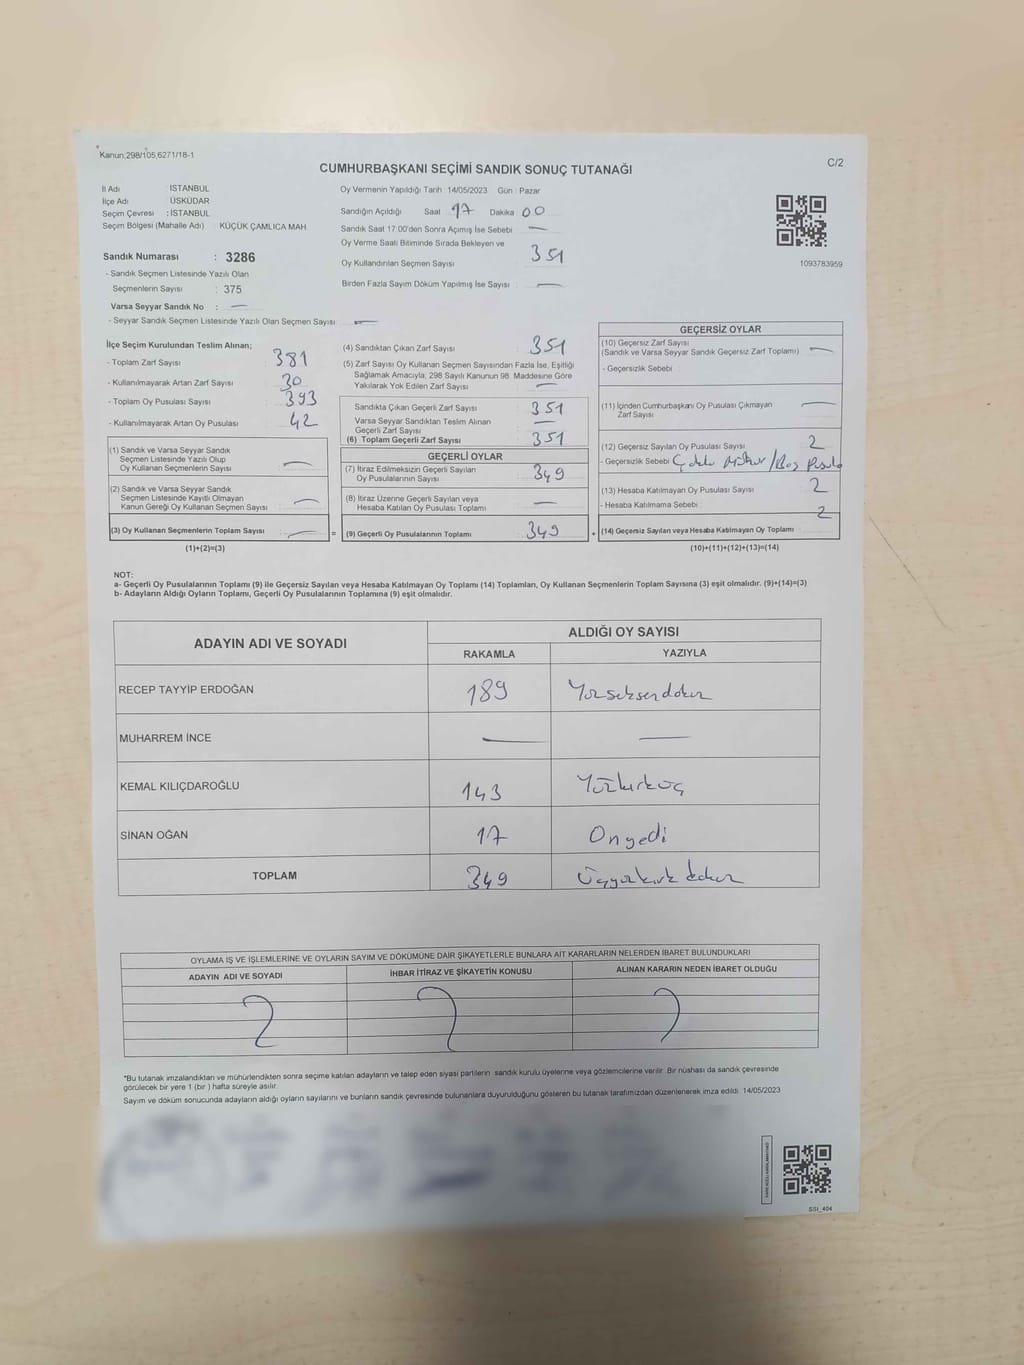 Kanun;298/105,6271/18-1
C/2
CUMHURBAŞKANI SEÇİMİ SANDIK SONUÇ TUTANAĞI
İl Adı İSTANBUL
İlçe Adı ÜSKÜDAR
Seçim Çevresi : İSTANBUL
Seçim Bölgesi (Mahalle Adı) : KÜÇÜK ÇAMLICA MAH.
Sandık Numarası : 3286
- Sandık Seçmen Listesinde Yazılı Olan
Seçmenlerin Sayısı : 375
Varsa Seyyar Sandık No : —
- Seyyar Sandık Seçmen Listesinde Yazılı Olan Seçmen Sayısı : —
Oy Vermenin Yapıldığı Tarih : 14/05/2023 Gün : Pazar
Sandığın Açıldığı Saat 17 Dakika 00
Sandık Saat 17:00'den Sonra Açımış İse Sebebi —
Oy Verme Saati Bitiminde Sırada Bekleyen ve
Oy Kullandırılan Seçmen Sayısı 351
Birden Fazla Sayım Döküm Yapılmış İse Sayısı : —
1093783959
İlçe Seçim Kurulundan Teslim Alınan;
- Toplam Zarf Sayısı : 381
- Kullanılmayarak Artan Zarf Sayısı : 30
- Toplam Oy Pusulası Sayısı : 393
- Kullanılmayarak Artan Oy Pusulası : 42
(1) Sandık ve Varsa Seyyar Sandık
Seçmen Listesinde Yazılı Olup
Oy Kullanan Seçmenlerin Sayısı : —
(2) Sandık ve Varsa Seyyar Sandık
Seçmen Listesinde Kayıtlı Olmayan
Kanun Gereği Oy Kullanan Seçmen Sayısı : —
(3) Oy Kullanan Seçmenlerin Toplam Sayısı : —
(1)+(2)=(3)
(4) Sandıktan Çıkan Zarf Sayısı : 351
(5) Zarf Sayısı Oy Kullanan Seçmen Sayısından Fazla İse, Eşitliği
Sağlamak Amacıyla; 298 Sayılı Kanunun 98. Maddesine Göre
Yakılarak Yok Edilen Zarf Sayısı : —
Sandıkta Çıkan Geçerli Zarf Sayısı : 351
Varsa Seyyar Sandıktan Teslim Alınan
Geçerli Zarf Sayısı : —
(6) Toplam Geçerli Zarf Sayısı : 351
GEÇERLİ OYLAR
(7) İtiraz Edilmeksizin Geçerli Sayılan
Oy Pusulalarının Sayısı : 349
(8) İtiraz Üzerine Geçerli Sayılan veya
Hesaba Katılan Oy Pusulası Toplamı : —
= (9) Geçerli Oy Pusulalarının Toplamı : 349 +
GEÇERSİZ OYLAR
(10) Geçersiz Zarf Sayısı
(Sandık ve Varsa Seyyar Sandık Geçersiz Zarf Toplamı) : —
- Geçersizlik Sebebi :
(11) İçinden Cumhurbaşkanı Oy Pusulası Çıkmayan
Zarf Sayısı : —
(12) Geçersiz Sayılan Oy Pusulası Sayısı : 2
- Geçersizlik Sebebi Çoklu Mühür/Boş Pusula
(13) Hesaba Katılmayan Oy Pusulası Sayısı : 2
- Hesaba Katılmama Sebebi :
(14) Geçersiz Sayılan veya Hesaba Katılmayan Oy Toplamı : 2
(10)+(11)+(12)+(13)=(14)
NOT:
a- Geçerli Oy Pusulalarının Toplamı (9) ile Geçersiz Sayılan veya Hesaba Katılmayan Oy Toplamı (14) Toplamları, Oy Kullanan Seçmenlerin Toplam Sayısına (3) eşit olmalıdır. (9)+(14)=(3)
b- Adayların Aldığı Oyların Toplamı, Geçerli Oy Pusulalarının Toplamına (9) eşit olmalıdır.
ADAYIN ADI VE SOYADI
ALDIĞI OY SAYISI
RAKAMLA YAZIYLA
RECEP TAYYİP ERDOĞAN 189 Yüzseksendokuz
MUHARREM İNCE — —
KEMAL KILIÇDAROĞLU 143 Yüzkırküç
SİNAN OĞAN 17 Onyedi
TOPLAM 349 Üçyüzkırkdokuz
OYLAMA İŞ VE İŞLEMLERİNE VE OYLARIN SAYIM VE DÖKÜMÜNE DAİR ŞİKAYETLERLE BUNLARA AİT KARARLARIN NELERDEN İBARET BULUNDUKLARI
ADAYIN ADI VE SOYADI İHBAR İTİRAZ VE ŞİKAYETİN KONUSU ALINAN KARARIN NEDEN İBARET OLDUĞU
*Bu tutanak imzalandıktan ve mühürlendikten sonra seçime katılan adayların ve talep eden siyasi partilerin sandık kurulu üyelerine veya gözlemcilerine verilir. Bir nüshası da sandık çevresinde
görülecek bir yere 1 (bir ) hafta süreyle asılır.
Sayım ve döküm sonucunda adayların aldığı oyların sayılarını ve bunların sandık çevresinde bulunanlara duyurulduğunu gösteren bu tutanak tarafımızdan düzenlenerek imza edildi. 14/05/2023
SSI_404